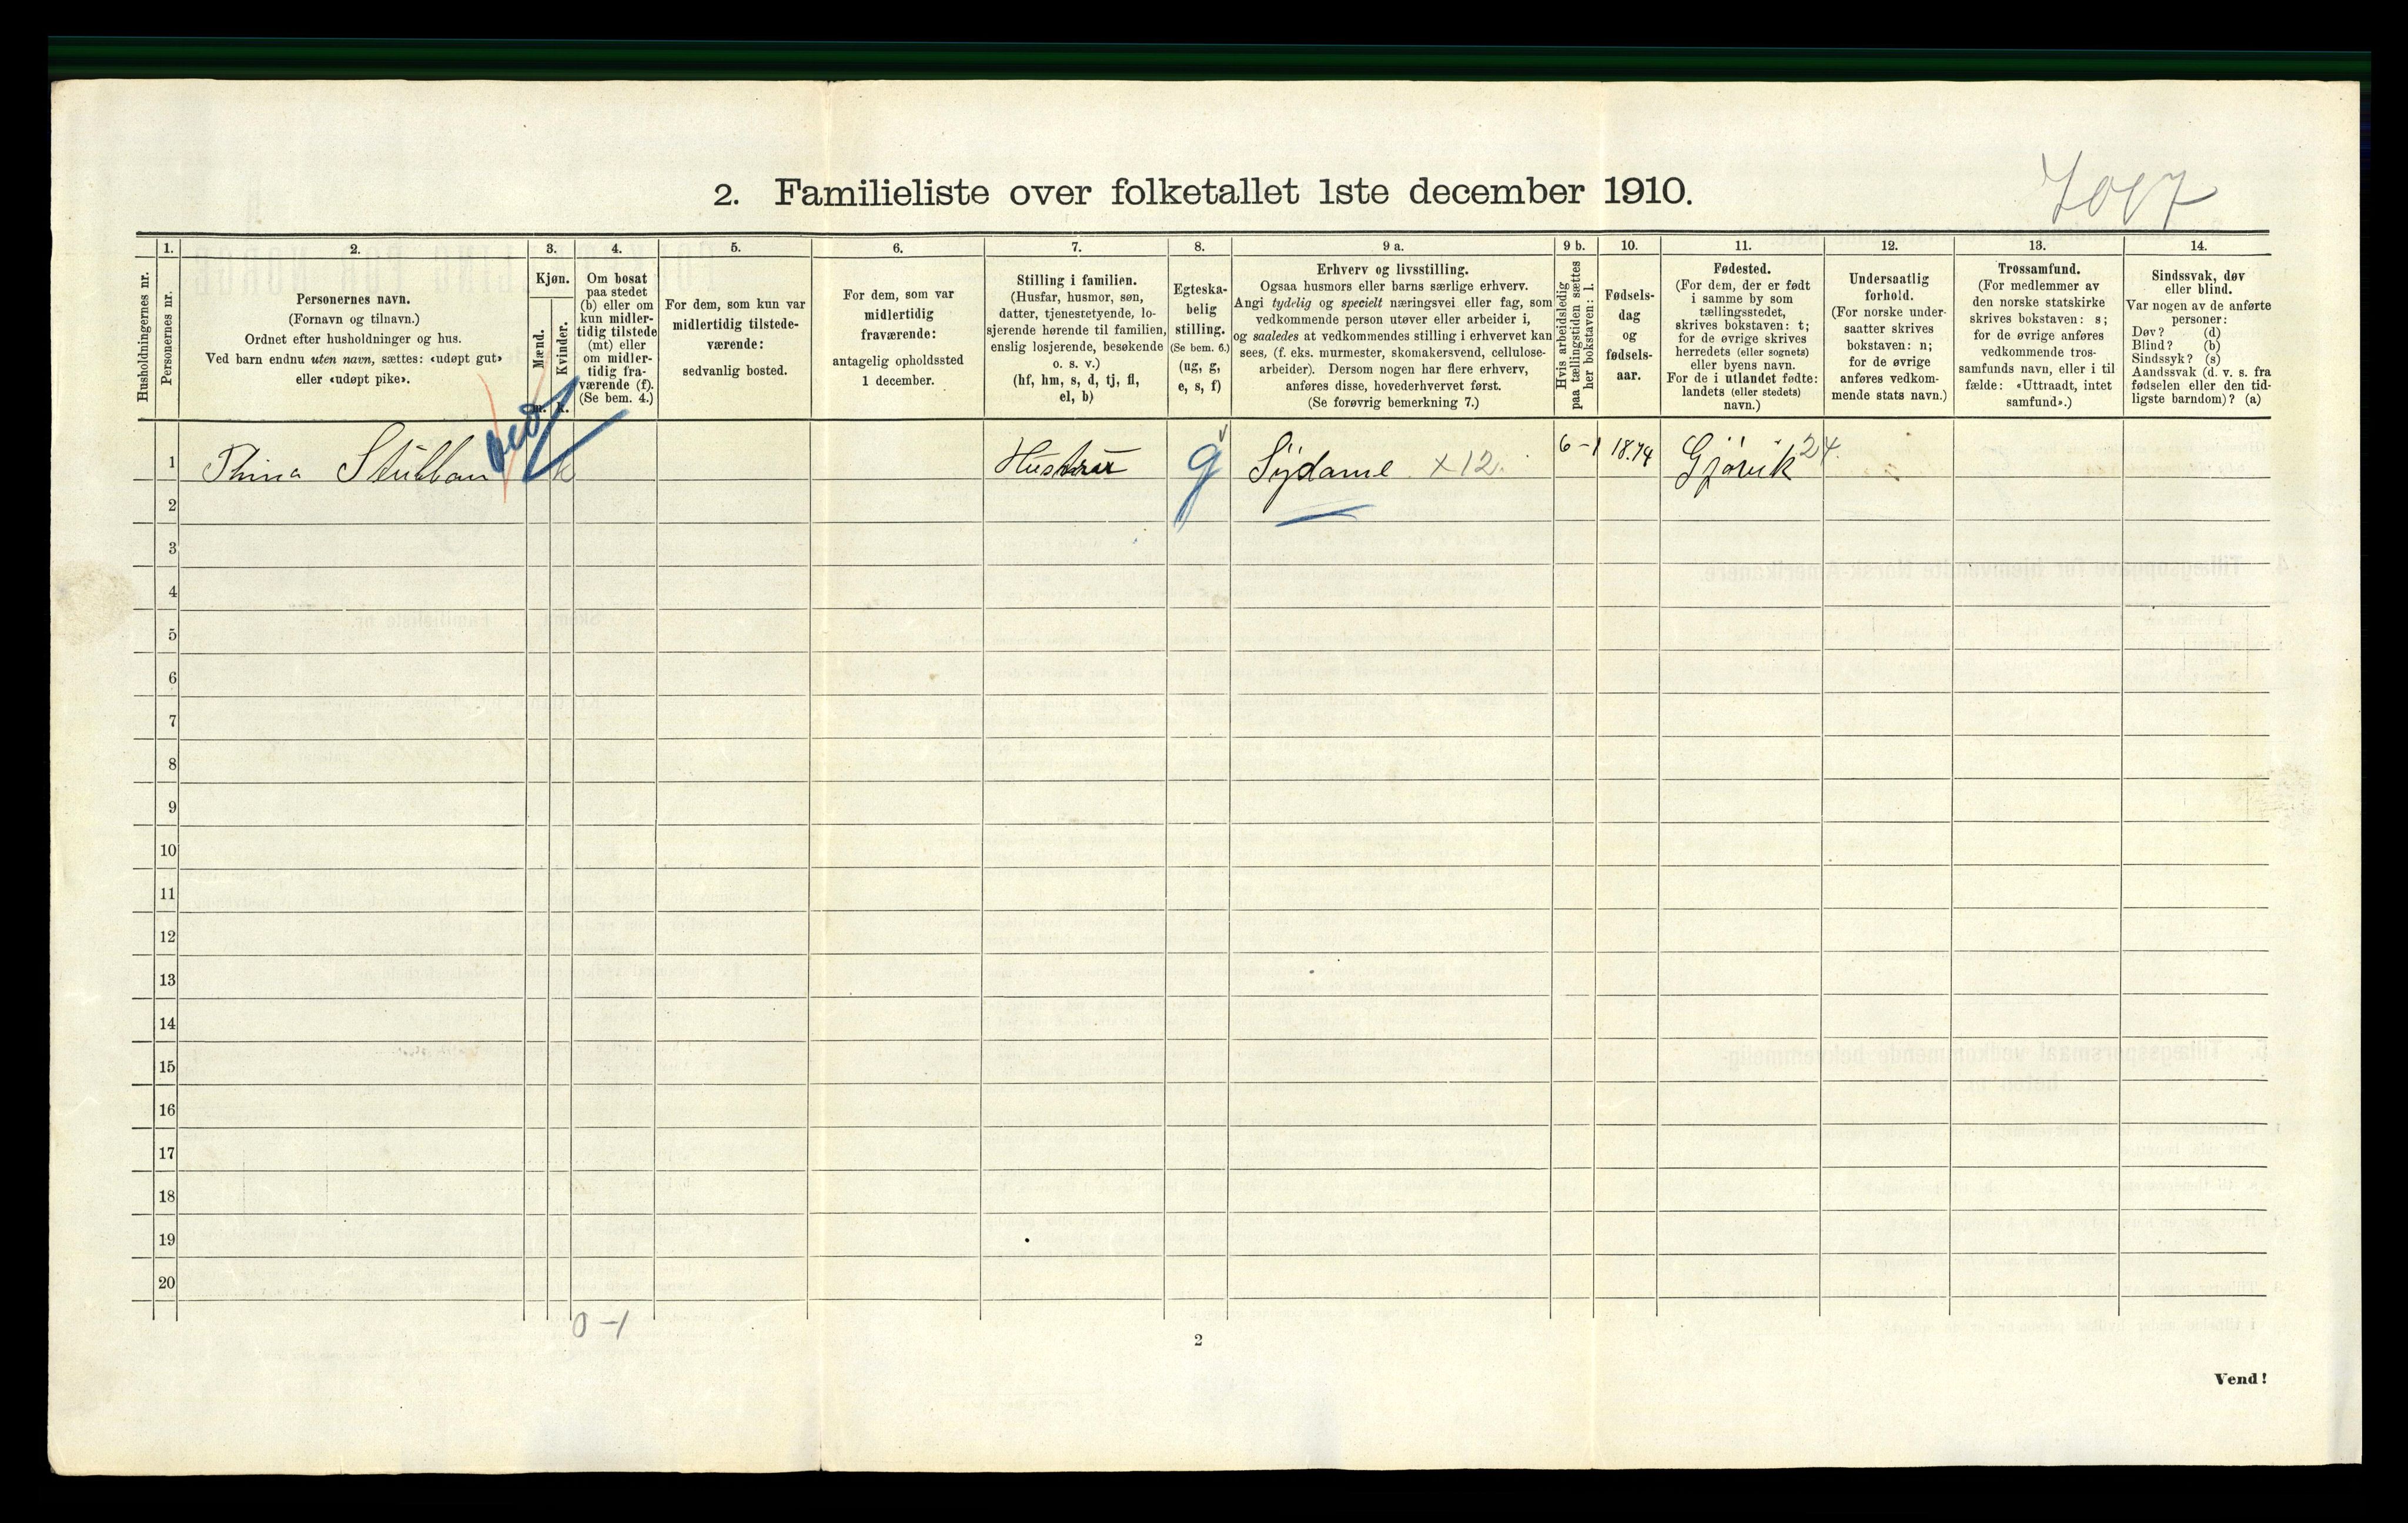 2. Familieliste over folketallet 1ste december 1910.
1. 2. 3. 4. 5. 6. 7. 8. 9 a. 9 b. 10. 11. 12. 13. 14.
Husholdningernes nr.
Personernes nr.
Personernes navn.
(Fornavn og tilnavn.)
Ordnet efter husholdninger og hus.
Ved barn endnu uten navn, sættes: «udøpt gut»
eller «udøpt pike».
Kjøn.
Mænd.
Kvinder.
m. k.
Om bosat
paa stedet
(b) eller om
kun midler-
tidig tilstede
(mt) eller
om midler-
tidig fra-
værende (f).
(Se bem. 4.)
For dem, som kun var
midlertidig tilstede-
værende:
sedvanlig bosted.
For dem, som var
midlertidig
fraværende:
antagelig opholdssted
1 december.
Stilling i familien.
(Husfar, husmor, søn,
datter, tjenestetyende, lo-
sjerende hørende til familien,
enslig losjerende, besøkende
o. s. v.)
(hf, hm, s, d, tj, fl,
el, b)
Egteska-
belig
stilling.
(Se bem. 6.)
(ug, g,
e, s, f)
Erhverv og livsstilling.
Ogsaa husmors eller barns særlige erhverv.
Angi tydelig og specielt næringsvei eller fag, som
vedkommende person utøver eller arbeider i,
og saaledes at vedkommendes stilling i erhvervet kan
sees, (f. eks. murmester, skomakersvend, cellulose-
arbeider). Dersom nogen har flere erhverv,
anføres disse, hovederhvervet først.
(Se forøvrig bemerkning 7.)
Hvis arbeidsledig
paa tællingstiden sættes
her bokstaven: l.
Fødsels-
dag
og
fødsels-
aar.
Fødested.
(For dem, der er født
i samme by som
tællingsstedet,
skrives bokstaven: t;
for de øvrige skrives
herredets (eller sognets)
eller byens navn.
For de i utlandet fødte:
landets (eller stedets)
navn.)
Undersaatlig
forhold.
(For norske under-
saatter skrives
bokstaven: n;
for de øvrige
anføres vedkom-
mende stats navn.)
Trossamfund.
(For medlemmer av
den norske statskirke
skrives bokstaven: s;
for de øvrige anføres
vedkommende tros-
samfunds navn, eller i til
fælde: «Uttraadt, intet
samfund».)
Sindssvak, døv
eller blind.
Var nogen av de anførte
personer:
Døv? (d)
Blind? (b)
Sindssyk? (s)
Aandssvak (d. v. s. fra
fødselen eller den tid-
ligste barndom)? (a)
1 Thina Stubban k Hustru g Sydame x 12. 6-1 1874 Gjøvik 24.
2
3
4
5
6
7
8
9
10
11
12
13
14
15
16
17
18
19
20
0-1
2
Vend!